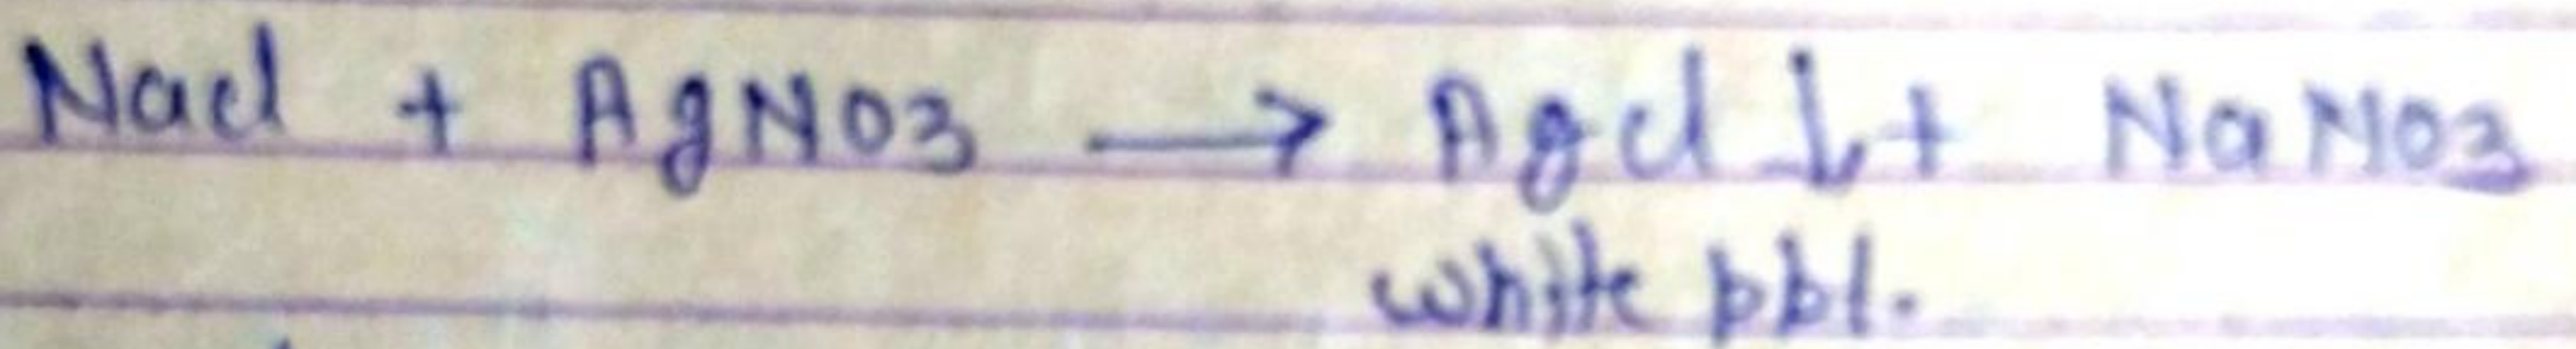 Nacl + AgNO3 → Agcl ↓ + NaNO3
white ppt.